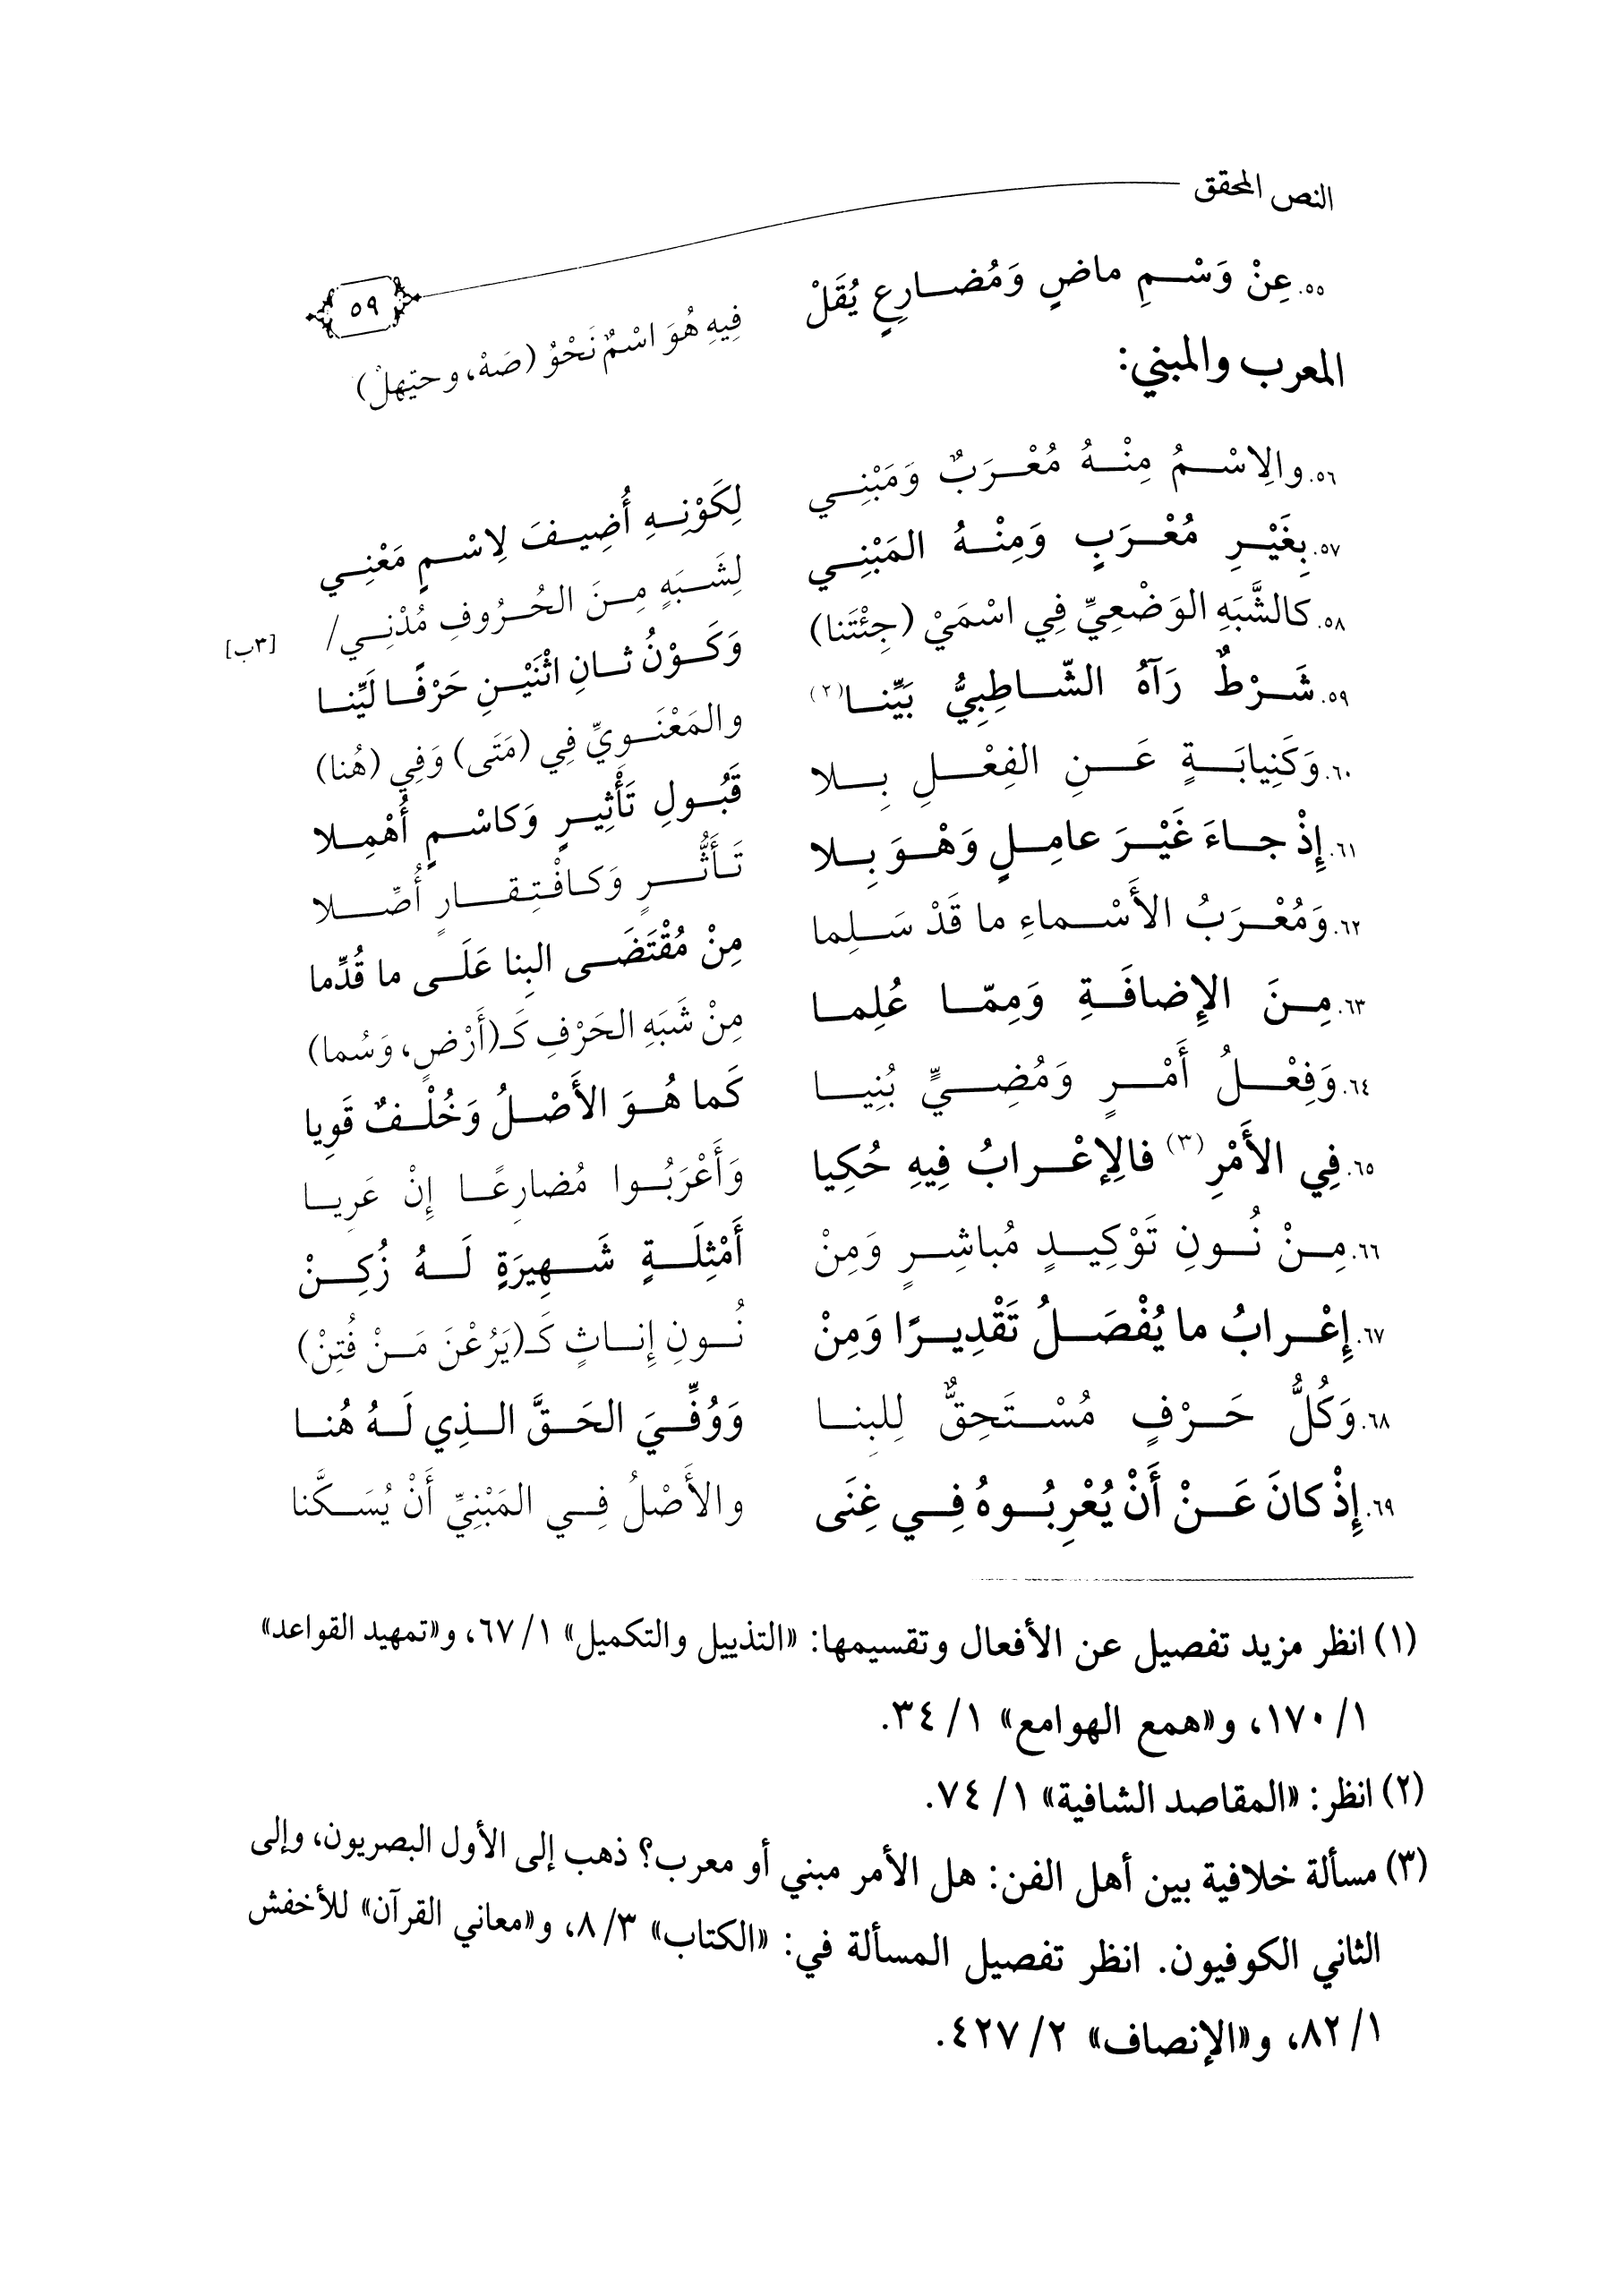 النص المحقق
٥٩
٥٥. عِنْ وَسْمِ ماضٍ وَمُضارِعٍ يُقَلْ فِيهِ هُوَ اسْمٌ نَحْوُ (صَهْ، وحيّهلْ)
المعرب والمبني:
٥٦. والِاسْمُ مِنْهُ مُعْرَبٌ وَمَبْنِي لِكَوْنِهِ أُضِيفَ لِاسْمٍ مَعْنِي
٥٧. بِغَيْرِ مُعْرَبٍ وَمِنْهُ المَبْنِي لِشَبَهٍ مِنَ الحُرُوفِ مُدْنِي/ [٣ب]
٥٨. كالشَّبَهِ الوَضْعِيِّ فِي اسْمَيْ (جِئْتَنا) وَكَوْنُ ثانِ اثْنَيْنِ حَرْفًا لَيِّنا
٥٩. شَرْطٌ رَآهُ الشّاطِبِيُّ بَيِّنا(٢) والمَعْنَوِيِّ فِي (مَتَى) وَفِي (هُنا)
٦٠. وَكَنِيابَةٍ عَنِ الفِعْلِ بِلا قَبُولِ تَأْثِيرٍ وَكاسْمٍ أُهْمِلا
٦١. إِذْ جاءَ غَيْرَ عامِلٍ وَهْوَ بِلا تَأَثُّرٍ وَكافْتِقارٍ أُصِّلا
٦٢. وَمُعْرَبُ الأَسْماءِ ما قَدْ سَلِما مِنْ مُقْتَضَى البِنا عَلَى ما قُدِّما
٦٣. مِنَ الإِضافَةِ وَمِمّا عُلِما مِنْ شَبَهِ الحَرْفِ كَـ(أَرْضٍ، وَسُما)
٦٤. وَفِعْلُ أَمْرٍ وَمُضِيٍّ بُنِيا كَما هُوَ الأَصْلُ وَخُلْفٌ قَوِيا
٦٥. فِي الأَمْرِ(٣) فالِإعْرابُ فِيهِ حُكِيا وَأَعْرَبُوا مُضارِعًا إِنْ عَرِيا
٦٦. مِنْ نُونِ تَوْكِيدٍ مُباشِرٍ وَمِنْ أَمْثِلَةٍ شَهِيرَةٍ لَهُ زُكِنْ
٦٧. إِعْرابُ ما يُفْصَلُ تَقْدِيرًا وَمِنْ نُونِ إِناثٍ كَـ(يَرُعْنَ مَنْ فُتِنْ)
٦٨. وَكُلُّ حَرْفٍ مُسْتَحِقٌّ لِلبِنا وَوُفِّيَ الحَقَّ الذِي لَهُ هُنا
٦٩. إِذْ كانَ عَنْ أَنْ يُعْرِبُوهُ فِي غِنَى والأَصْلُ فِي المَبْنِيِّ أَنْ يُسَكَّنا
(١) انظر مزيد تفصيل عن الأفعال وتقسيمها: «التذييل والتكميل» ١/ ٦٧، و«تمهيد القواعد»
١/ ١٧٠، و«همع الهوامع» ١/ ٣٤.
(٢) انظر: «المقاصد الشافية» ١/ ٧٤.
(٣) مسألة خلافية بين أهل الفن: هل الأمر مبني أو معرب؟ ذهب إلى الأول البصريون، وإلى
الثاني الكوفيون. انظر تفصيل المسألة في: «الكتاب» ٣/ ٨، و«معاني القرآن» للأخفش
١/ ٨٢، و«الإنصاف» ٢/ ٤٢٧.